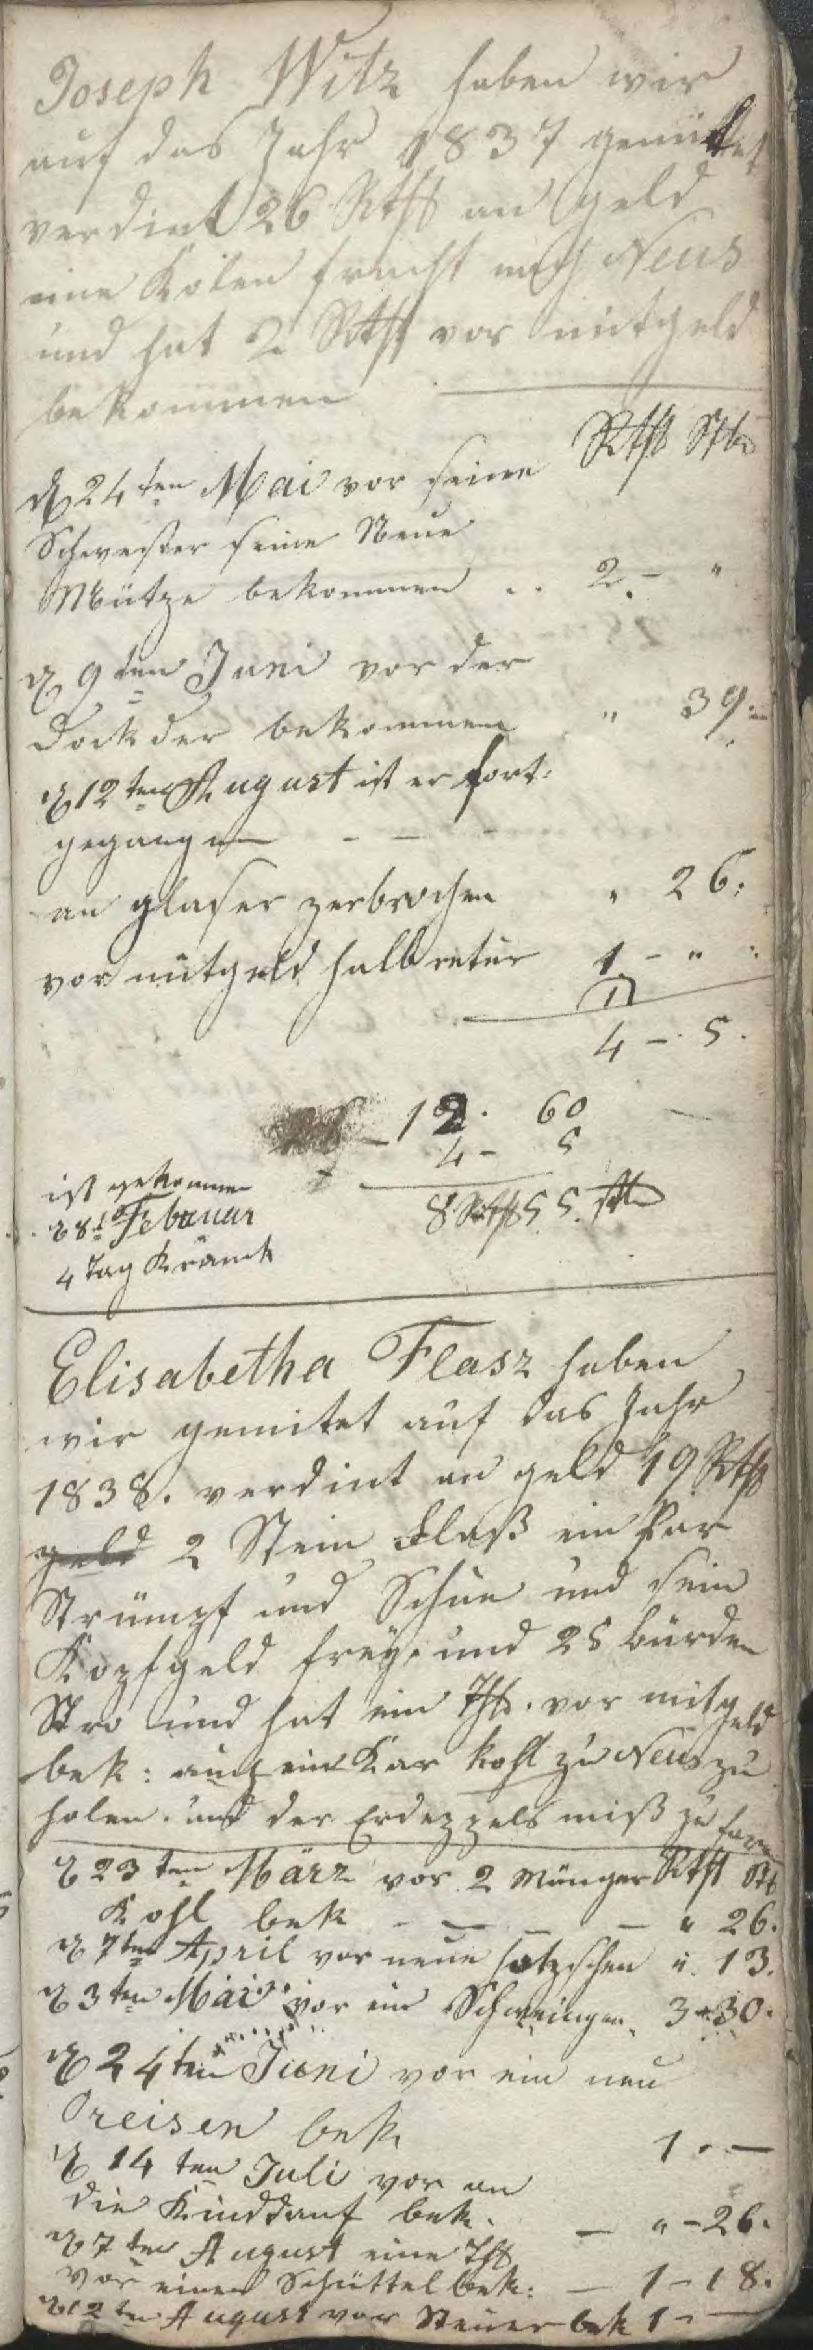 Joseph Witz haben wir
auf das Jahr 1837 gemütet
verdint 26 Rthlr an geld
eine Kolen fracht nach Neus
und hat 2 Rthlr vor mitgeld
bekommen
Rthlr Stb
d 24ten Mai vor seine
Schwester seine Neue
Mütze bekommen .. 2. - "
d 9ten Juni vor der
Dockder bekommen " 39.
d 12ten August ist er fort-
gegangen - - -
an glaser zerbrochen " 26.
vor mitgeld halb retur 1 - "
4 - 5.
12. 60
4 - 5
8 Rthlr 55. stb
ist gekommen
d 8t Febauar
4 Tag Kranck
Elisabetha Flasz haben
wir gemitet auf das Jahr
1838. verdint an geld 19 Rthlr
geld 2 Stein Flaß ein Par
Strümpf und Schue und sein
Kopfgeld frey. und 25 bürden
Stro und hat ein Thlr. vor mitgeld
bek: auch ein Kar kohl zu Neus zu
holen. und der Erdeppels miß zu faren
d 23ten März vor 2 Rthlr Stb
Kohl bek - - - " 26.
d 7ten April vor neue " 13.
d 3ten Mai vor ein 3 - 30.
d 24ten Juni vor ein neu
bek 1 . -
d 14ten Juli vor an
die Kinddauf bek. - " - 26.
d 7ten August eine Thlr
vor einen Schüttel bek: - 1 - 18.
d 12ten August vor Steuer bek 1 - -